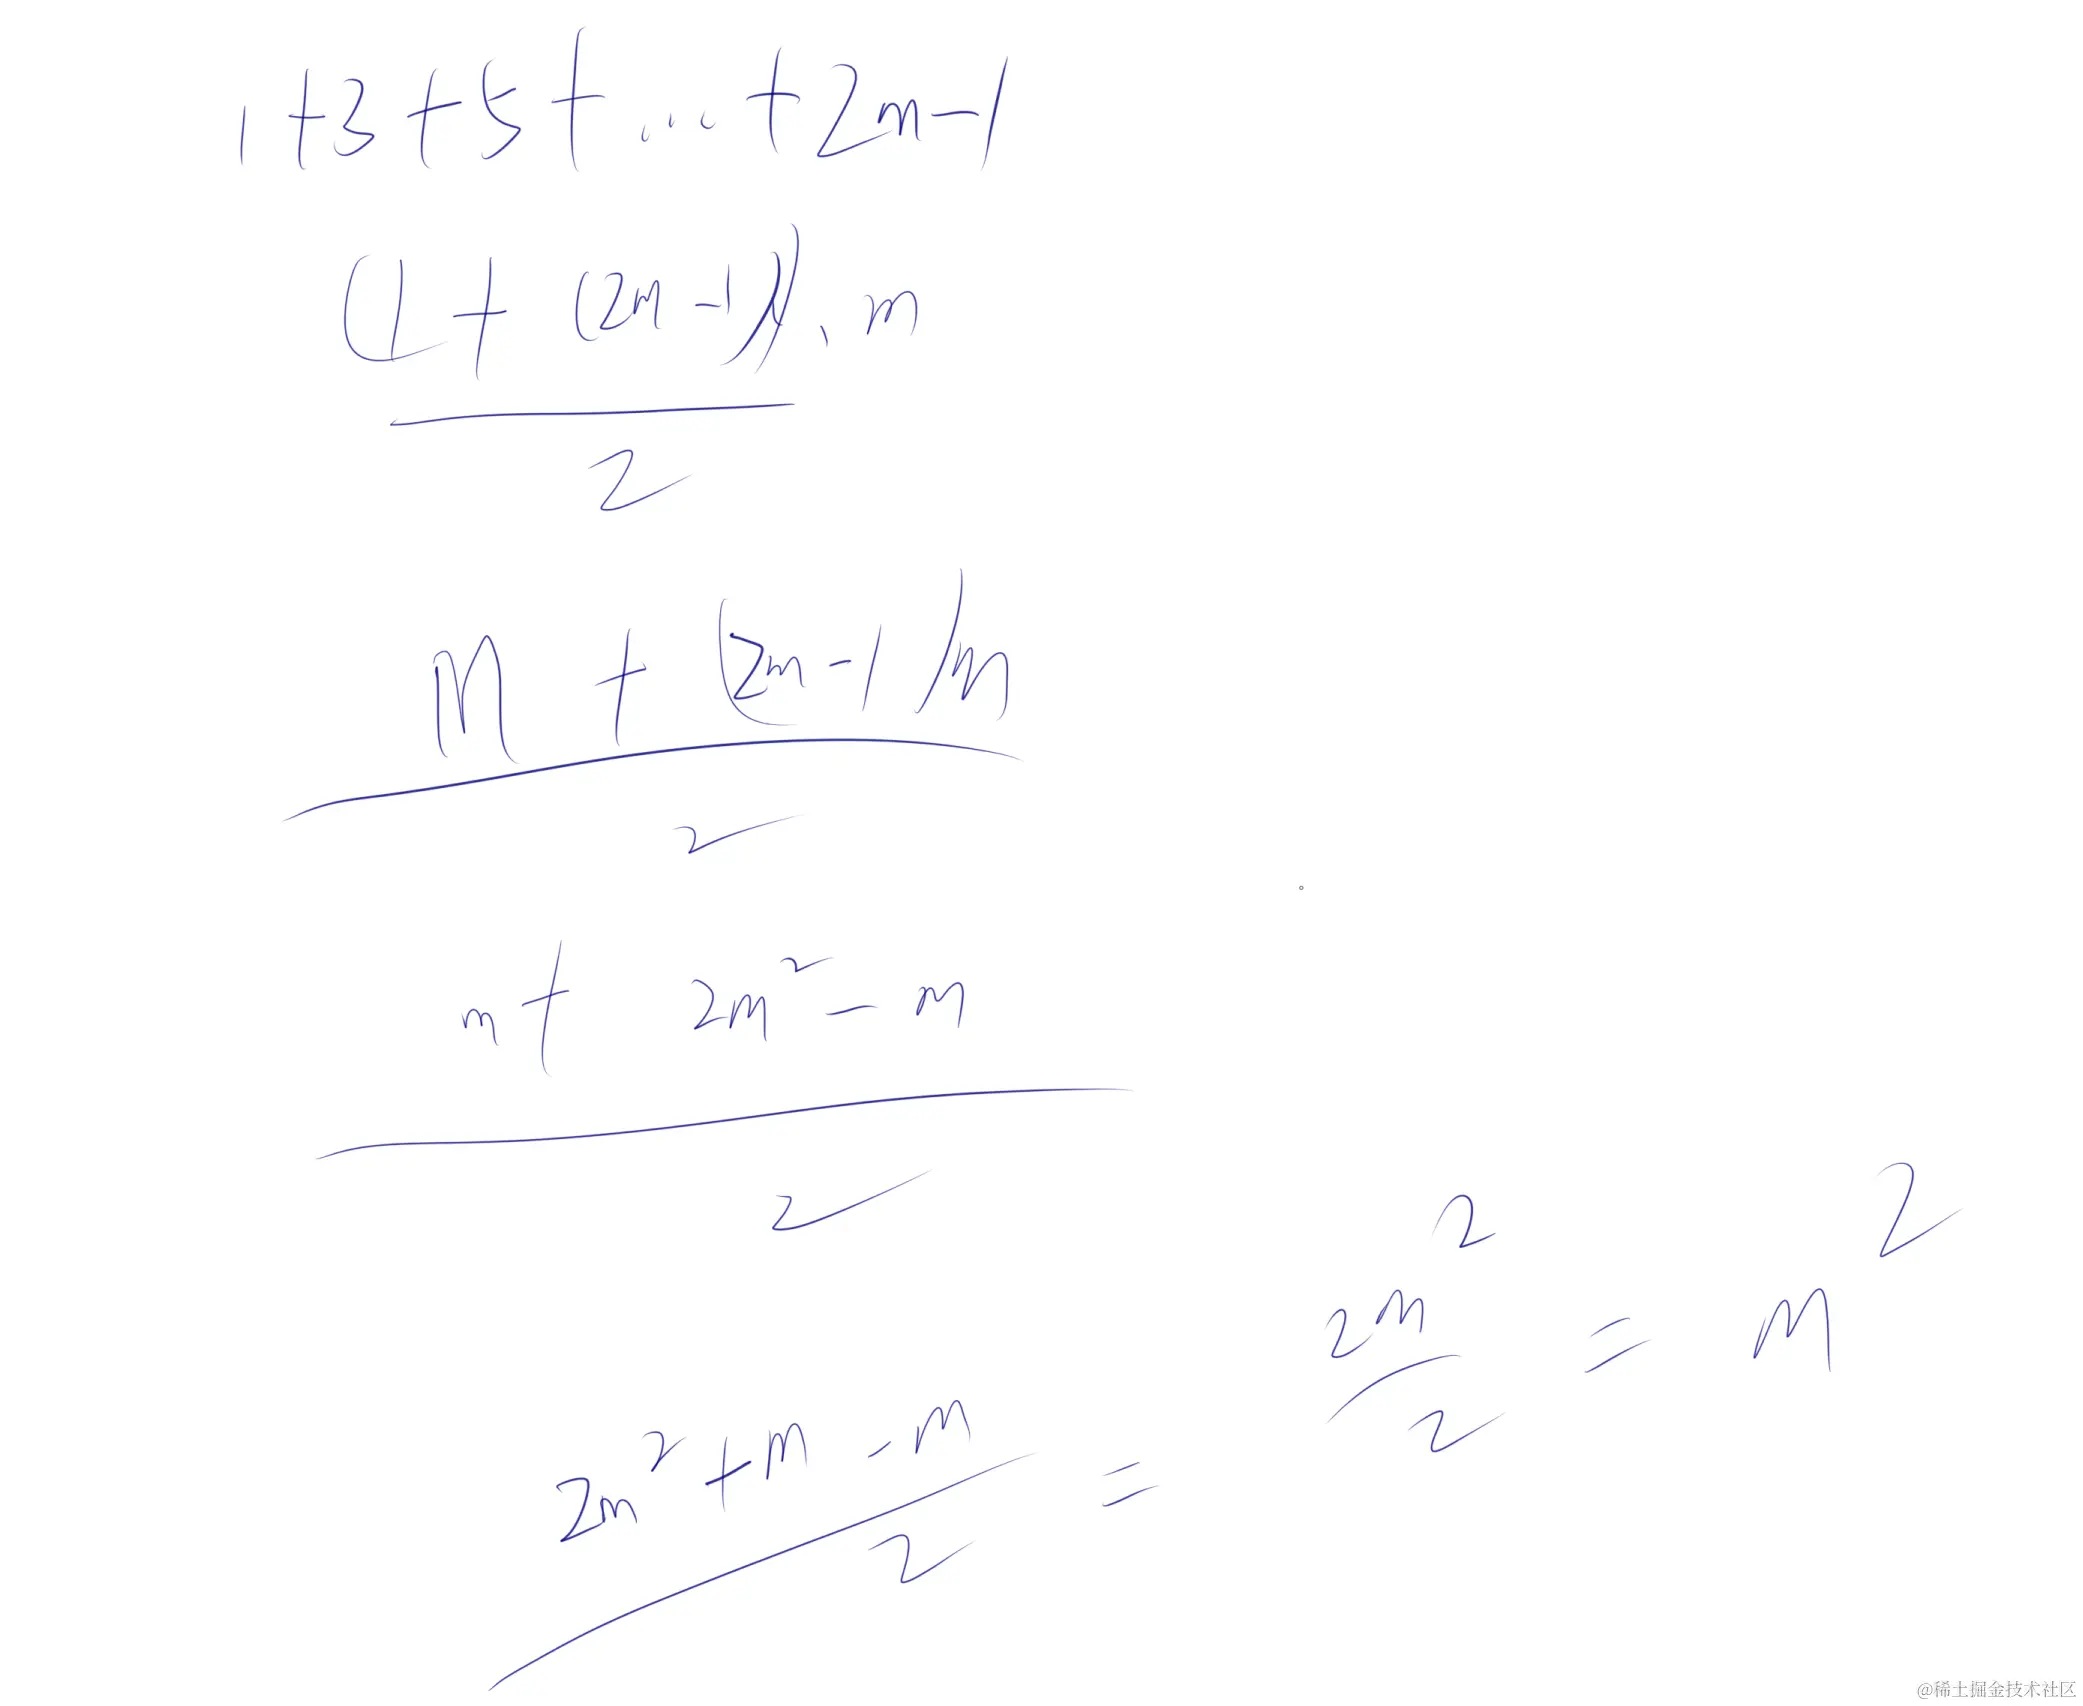 1+3+5+...+2m-1
(1+(2m-1)).m
2
m+(2m-1)m
2
m+2m²-m
2
2m²+m-m
2
=
2m²
2
=
m²
@稀土掘金技术社区